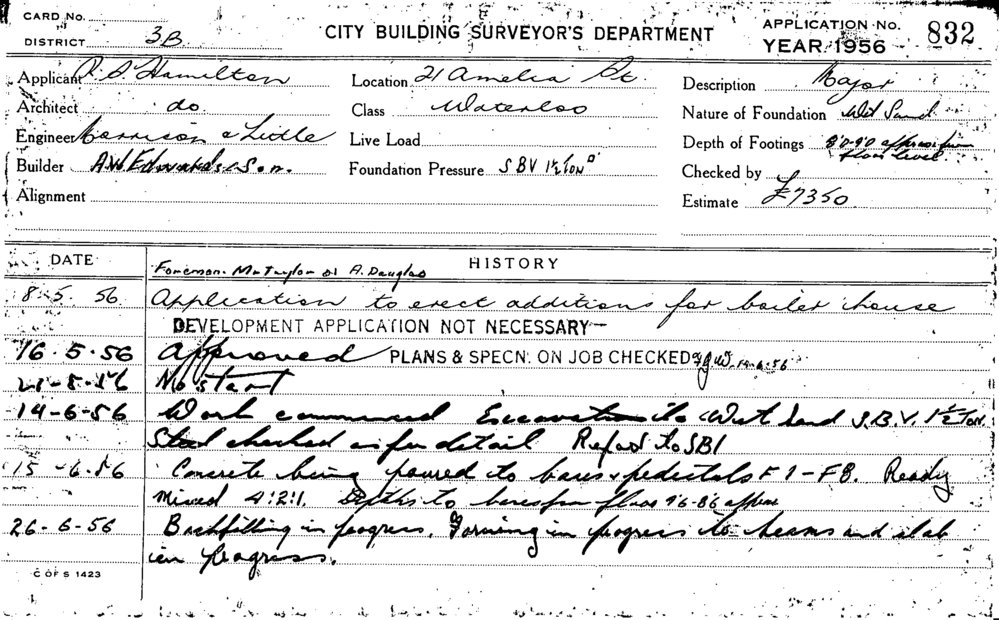 CARD No.
DISTRICT 3B
CITY BUILDING SURVEYOR'S DEPARTMENT
APPLICATION No. 832
YEAR 1956
Applicant R. S. Hamilton
Location 21 Amelia St.
Description Major
Architect do.
Class Waterloo
Nature of Foundation Wet Sand
Engineer Morrison & Little
Live Load
Depth of Footings 8'0-9'0 approx from floor level
Builder A.W. Edwards & Son.
Foundation Pressure SBV 1½ Ton
Checked by
Alignment
Estimate £7350
DATE
HISTORY
Foreman Mr Taylor or A. Douglas
8. 5. 56 Application to erect additions for boiler house
DEVELOPMENT APPLICATION NOT NECESSARY
16.5.56 Approved PLANS & SPECN. ON JOB CHECKED 14-6-56
No start
14-6-56 Work commenced Excavation to Wet Sand S.B.V. 1½ Ton.
Steel checked as per detail Refer to SBI
15-6-56 Concrete being poured to bases & pedestals F1-F8. Ready
Mixed 4:2:1. Depths to bases from floor 7'6-8'6 approx
26-6-56 Backfilling in progress. Forming in progress to beams and slab
in progress.
C OF S 1423